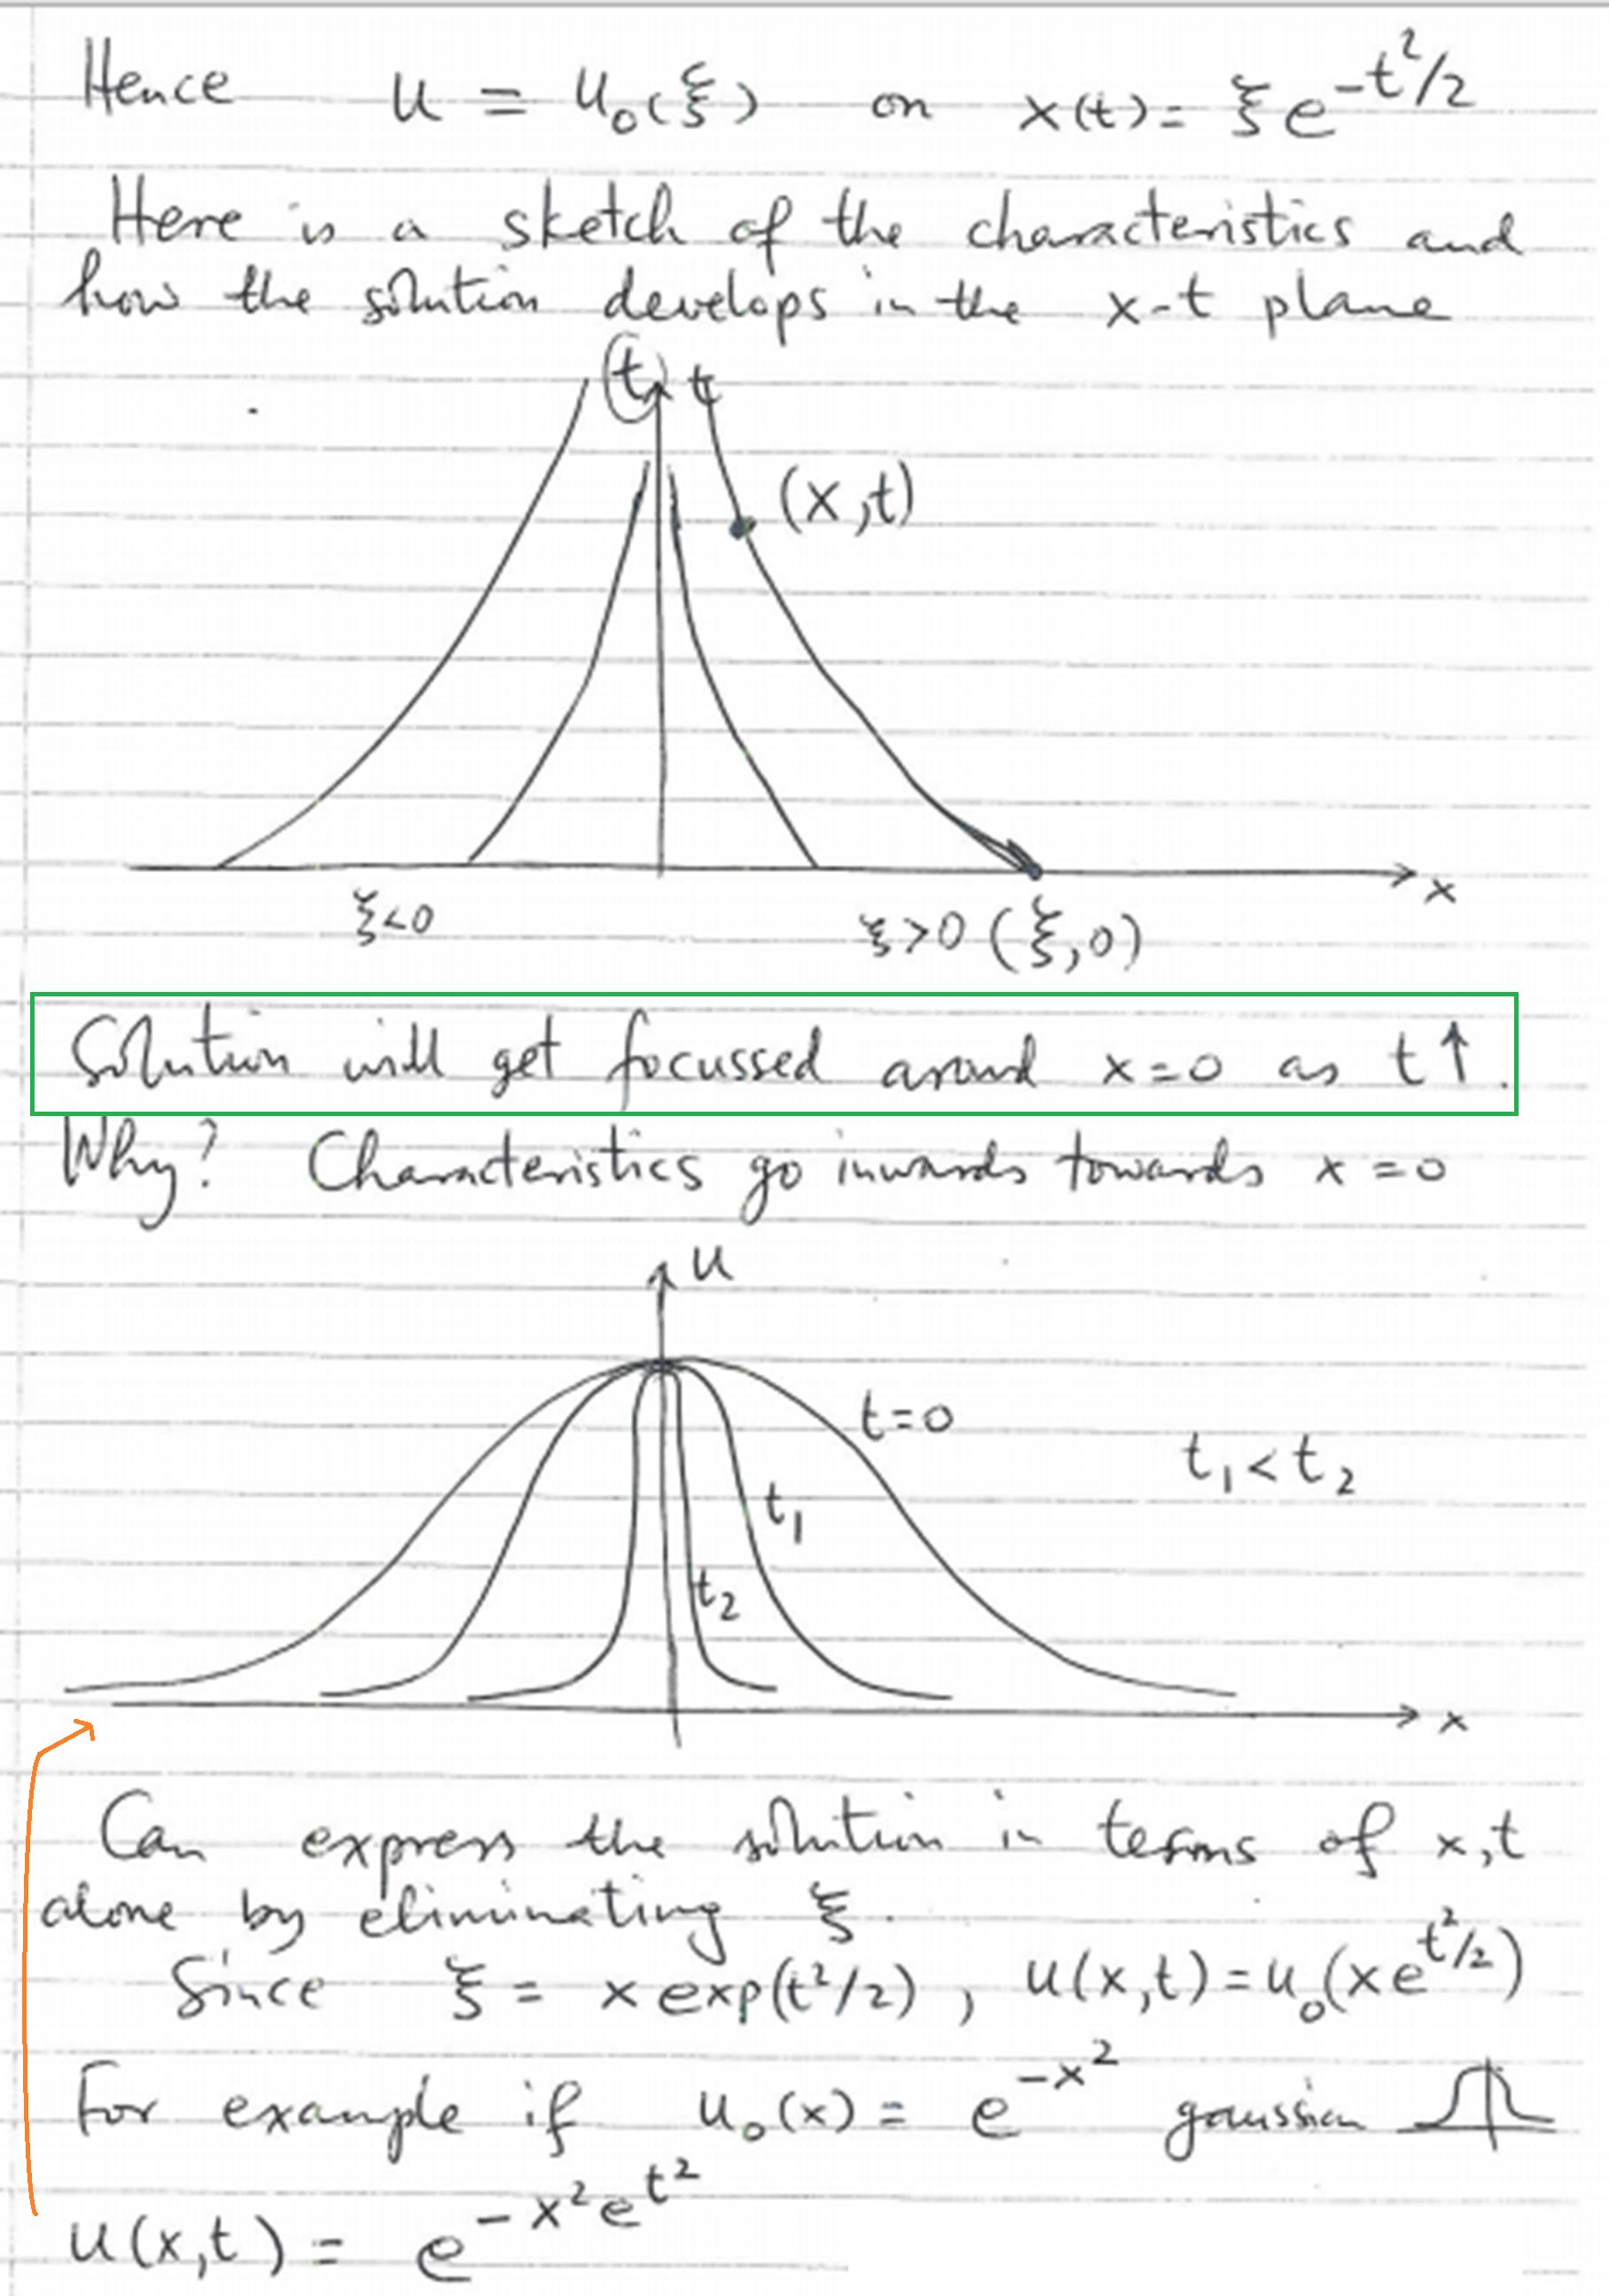 Hence u = u₀(ξ) on x(t) = ξe^{-t²/2}
Here is a sketch of the characteristics and
how the solution develops in the x-t plane
(t) t
(x,t)
x
ξ<0
ξ>0 (ξ,0)
Solution will get focussed around x=0 as t↑.
Why? Characteristics go inwards towards x=0
u
t=0
t₁<t₂
t₁
t₂
x
Can express the solution in terms of x,t
alone by eliminating ξ.
Since ξ = x exp(t²/2), u(x,t)=u₀(xe^{t²/2})
For example if u₀(x) = e^{-x²} gaussian
u(x,t) = e^{-x²e^{t²}}